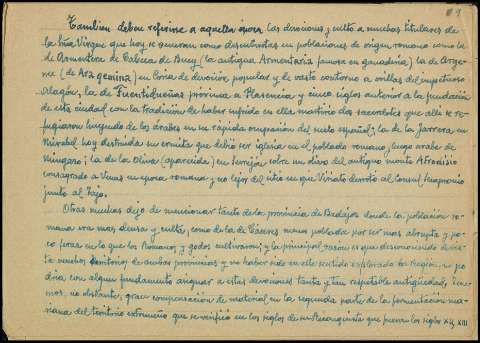 9
Tambien deben referirse a aquella época las devociones y culto a muchas titulares de
la Sma. Virgen que hoy se veneran como descubiertas en poblaciones de origen romano como la
de Armentera de Cabeza de Buey (la antigua Armentaria famosa en ganadería) la de Arge-
me (de Ara gemina) en Coria de devoción popular y de vasto contorno a orillas del impetuoso
Alagón; la de Fuentidueñas próxima a Plasencia y cinco siglos anterior a la fundación
de esta ciudad con la tradición de haber sufrido en ella martirio dos sacerdotes que alli se re-
fugiaron huyendo de los árabes en su rápida ocupación del suelo español; la de la Jarrera en
Mirabel hoy destruida su ermita que debió ser iglesia en el poblado romano, luego arabe de
la de la Oliva (aparecida) en Serrejón sobre un olivo del antiguo monte Afrodisio
consagrado a Venus en época romana y no lejos del sitio en que Viriato derrotó al Consul
junto al Tajo.
Otras muchas dejo de mencionar tanto de la provincia de Badajoz donde la población ro-
mana era mas densa y culta, como de la de Cáceres menos poblada por ser mas abrupta y po-
co feraz en lo que los Romanos y godos cultivaron; y la principal razón es que desconociendo
muchos territorios de ambas provincias y no haber sido en este sentido explorada la Región, se po-
dría con algun fundamento asignar a estas devociones tanta y tan respetable antigüedad;
mos, no obstante, gran compensación de material en la segunda parte de la fomentación ma-
riana del territorio extremeño que se verificó en los siglos de su Reconquista que fueron los siglos XII, XIII